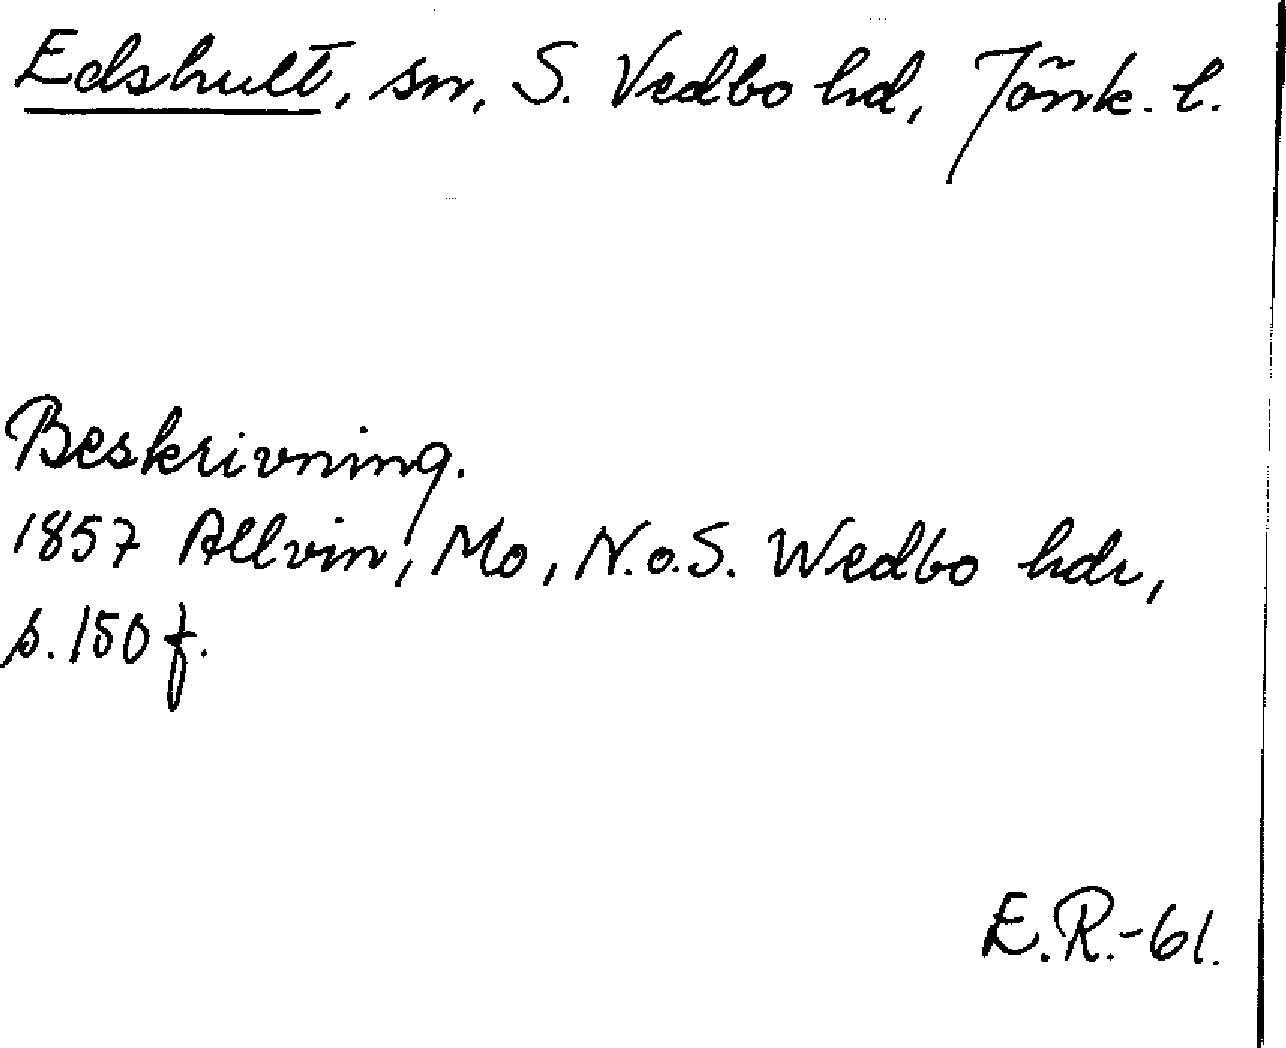 Edshult, sn, S. Vedbo hd, Jönk. l.
Beskrivning.
1857 Allvin, Mo, N.o.S. Wedbo hdr,
s. 150 f.
E.R.-61.